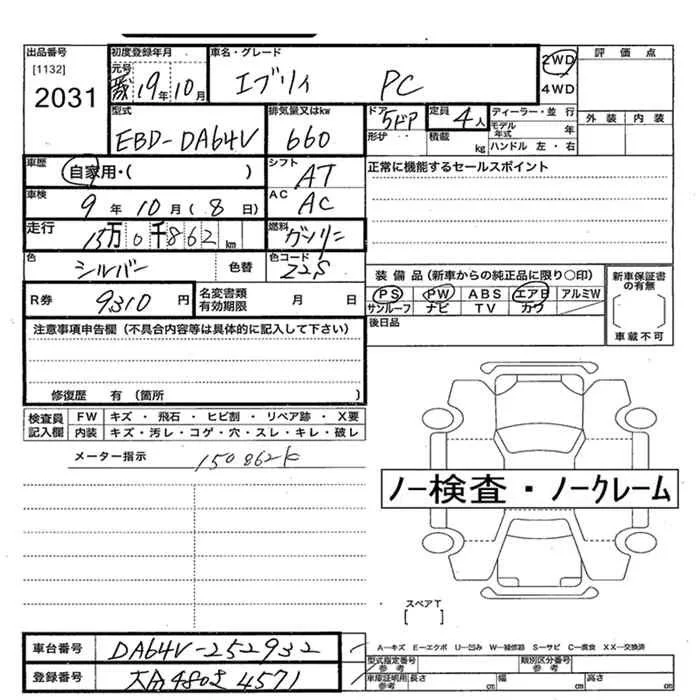 出品番号
[1132]
2031
初度登録年月
元号
19年10月
車名・グレード
エブリィ PC
2WD
4WD
評価点
外装 内装
型式
EBD-DA64V
排気量又はkw
660
ドア
5ドア
形状
定員
4人
積載
kg
ディーラー・並行
モデル年式 年
ハンドル 左・右
車歴
自家用・( )
シフト
AT
正常に機能するセールスポイント
車検
9年10月(8日)
AC
AC
走行
15万0千862km
燃料
ガソリン
色
シルバー
色替
色コード
Z2S
装備品(新車からの純正品に限り○印)
PS PW ABS エアB アルミW
サンルーフ ナビ TV カワ
新車保証書の有無
車載不可
R券
9310円
名変書類有効期限
月 日
後日品
注意事項申告欄(不具合内容等は具体的に記入して下さい)
修復歴 有(箇所 )
検査員記入欄
FW キズ・飛石・ヒビ割・リペア跡・X要
内装 キズ・汚レ・コゲ・穴・スレ・キレ・破レ
メーター指示
150862k
ノー検査・ノークレーム
スペアT
[ ]
A-キズ E-エクボ U-凹み W-補修跡 S-サビ C-腐食 XX-交換済
車台番号
DA64V-252932
登録番号
4571
型式指定番号
参考
類別区分番号
参考
車庫証明用
参考
長さ cm
幅 cm
高さ cm